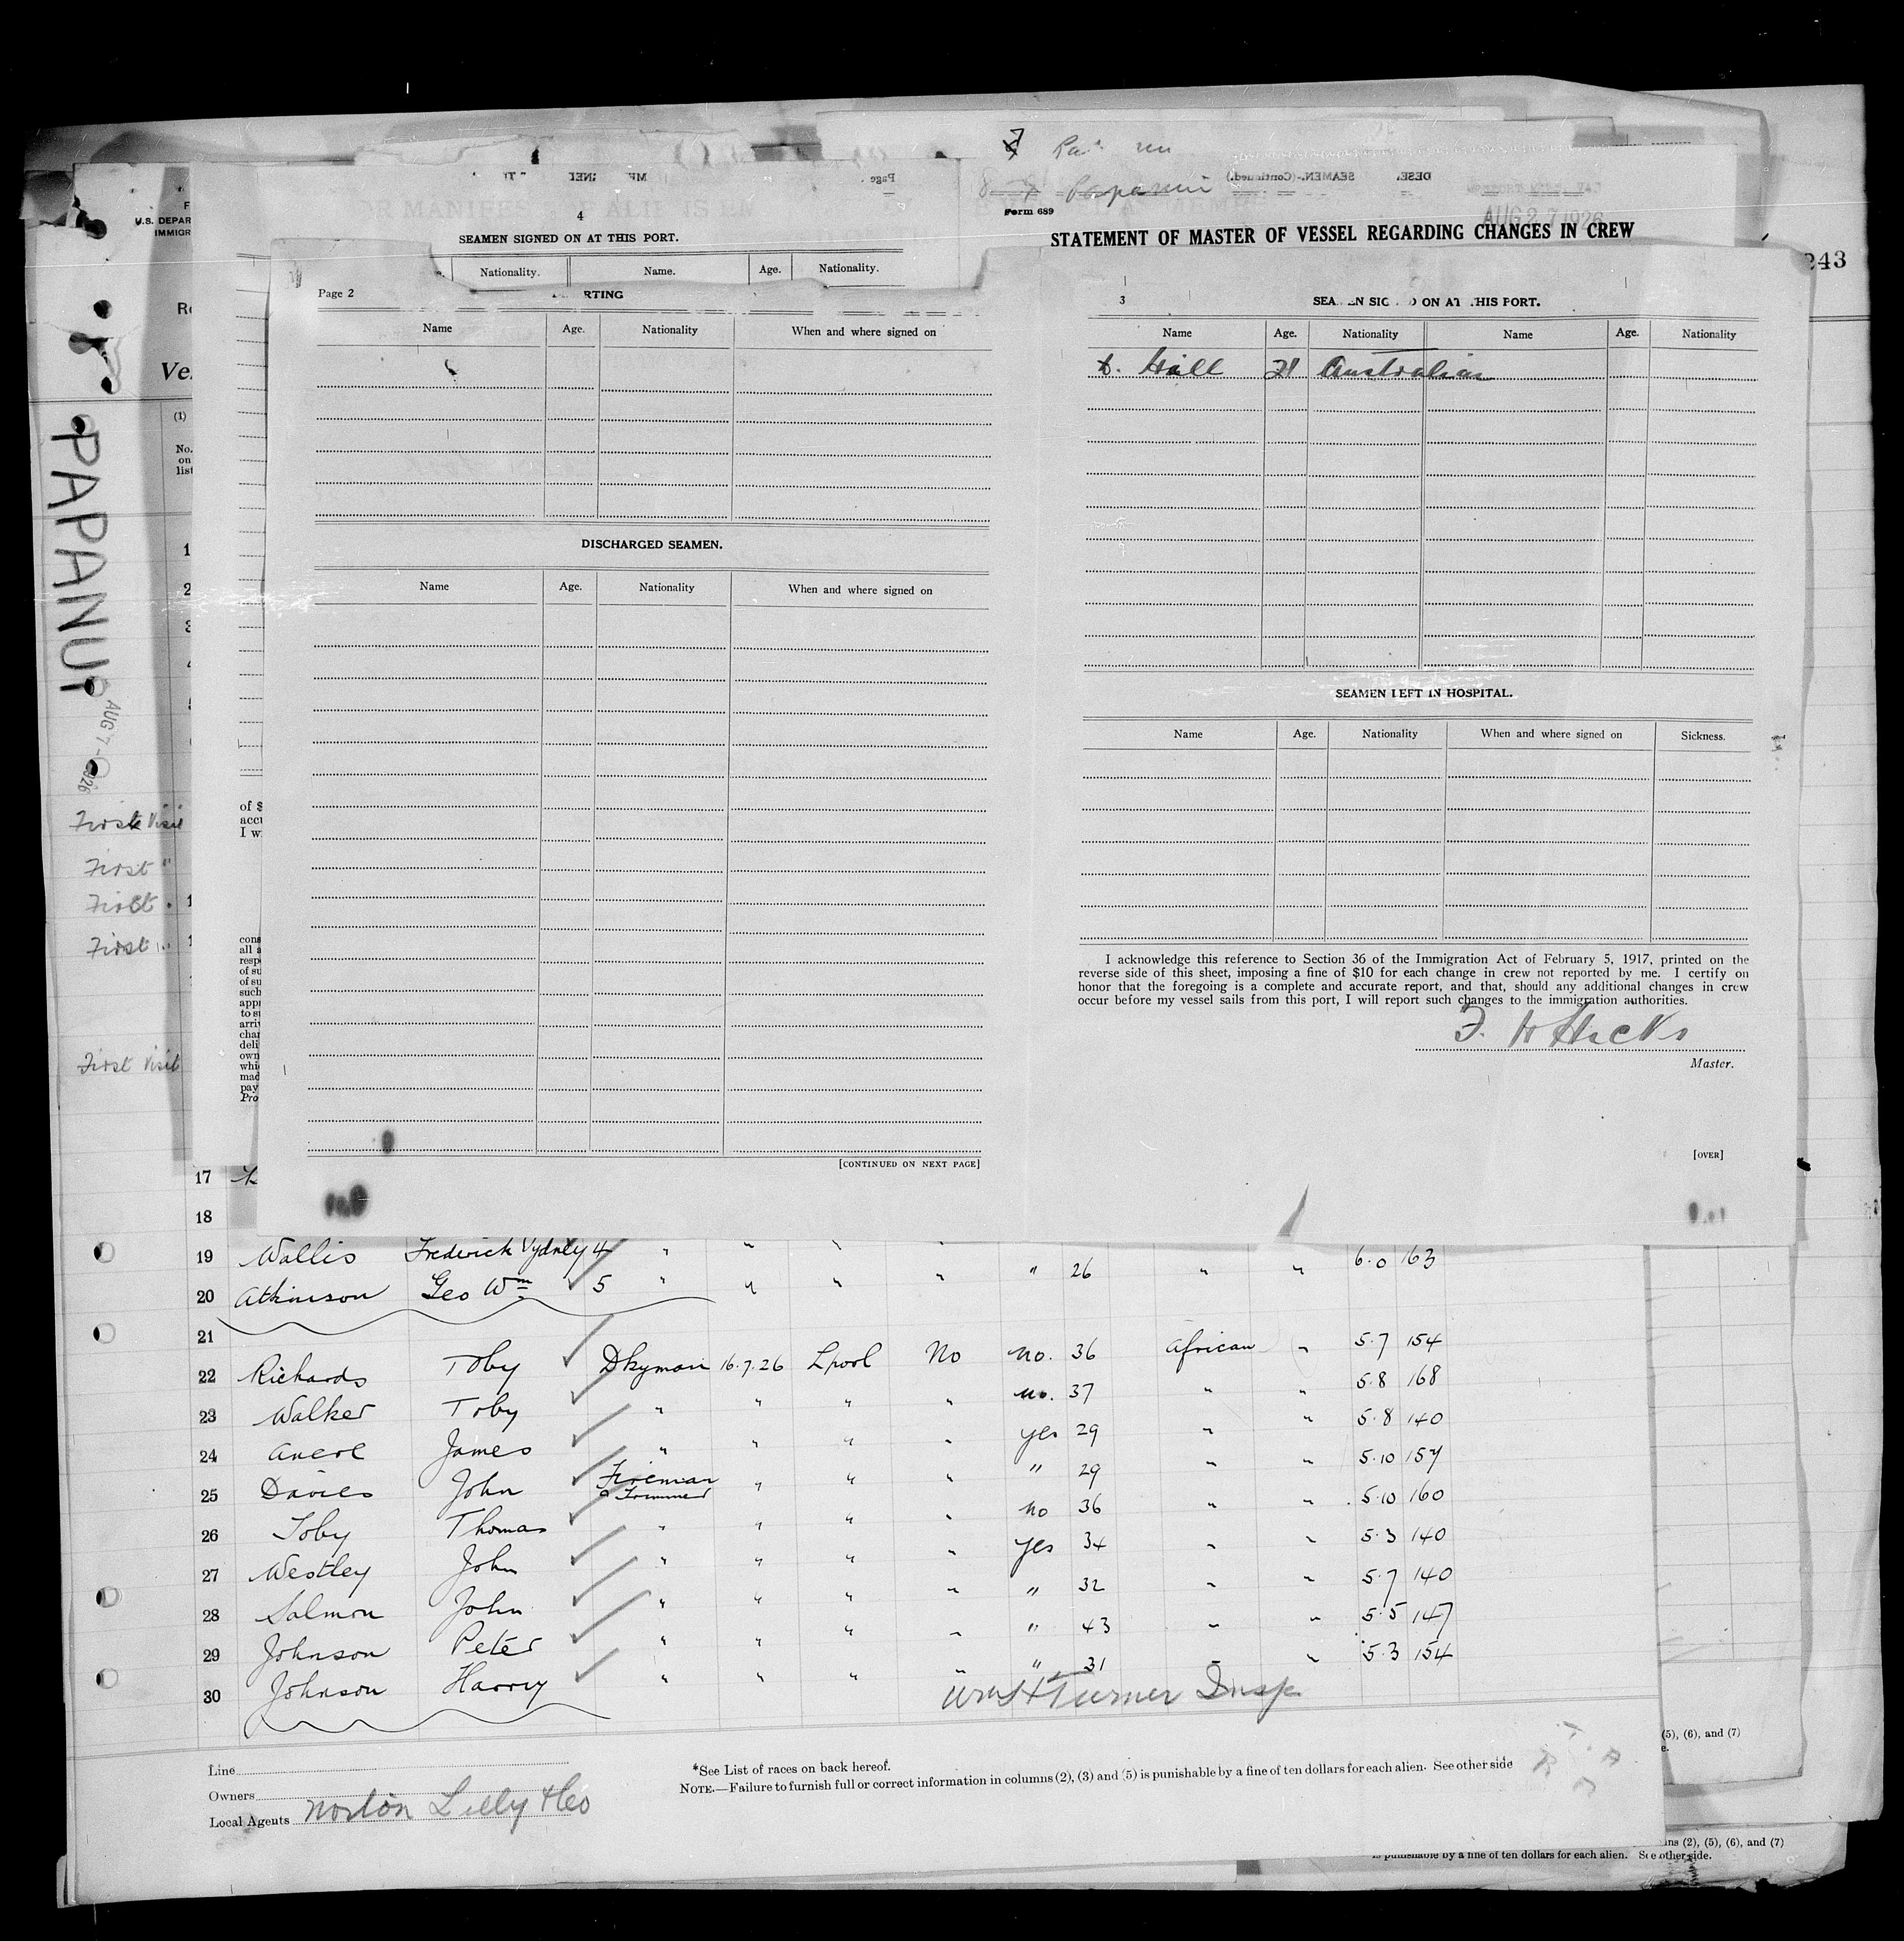 PAPANUI
AUG 7 - 1926
First Visit
First "
First
First
First Visit
U.S. DEPAR
IMMIGR
(1)
No.
on
list
4
SEAMEN SIGNED ON AT THIS PORT.
Nationality. Name. Age. Nationality.
Form 689
AUG 27 1926
STATEMENT OF MASTER OF VESSEL REGARDING CHANGES IN CREW
243
Page 2
RTING
Name Age. Nationality When and where signed on
DISCHARGED SEAMEN.
Name Age. Nationality When and where signed on
[CONTINUED ON NEXT PAGE]
3
SEAMEN SIGNED ON AT THIS PORT.
Name Age. Nationality Name Age. Nationality
Hall 21 Australian
SEAMEN LEFT IN HOSPITAL.
Name Age. Nationality When and where signed on Sickness.
I acknowledge this reference to Section 36 of the Immigration Act of February 5, 1917, printed on the
reverse side of this sheet, imposing a fine of $10 for each change in crew not reported by me. I certify on
honor that the foregoing is a complete and accurate report, and that, should any additional changes in crew
occur before my vessel sails from this port, I will report such changes to the immigration authorities.
Master.
[OVER]
of $
I w
cons
all a
resp
of su
of su
such
appr
to su
arriv
char
deli
own
whi
mad
pay
Pro
17
18
19 Wallis Frederick Sydney 4 " " " "
20 Atkinson Geo Wm 5 " " " " " 26 " " 6.0 163
21
22 Richards Toby Dkyman 16.7.26 Lpool No no. 36 African " 5.7 154
23 Walker Toby " " " " no. 37 " " 5.8 168
24 James " " " " yes 29 " " 5.8 140
25 Davies John Fireman & Trimmer " " " " 29 " " 5.10 157
26 Toby Thomas " " " " no 36 " " 5.10 160
27 Westley John " " " " yes 34 " " 5.3 140
28 Salmon John " " " " " 32 " " 5.7 140
29 Johnson Peter " " " " " 43 " " 5.5 147
30 Johnson Harry " " " " " 31 " " 5.3 154
Wm H Turner Insp
Line
Owners
Local Agents Norton Lilly & Co
*See List of races on back hereof.
NOTE.—Failure to furnish full or correct information in columns (2), (3) and (5) is punishable by a fine of ten dollars for each alien. See other side
(5), (6), and (7)
e.
ns (2), (5), (6), and (7)
is punishable by a fine of ten dollars for each alien. See other side.